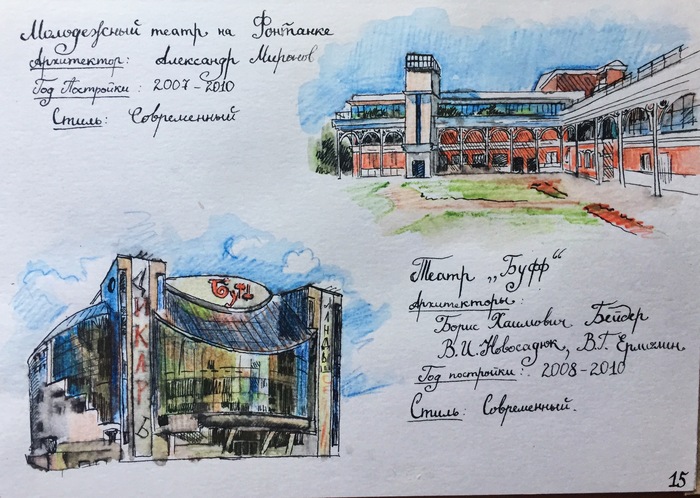 Молодежный театр на Фонтанке
Архитектор: Александр Миронов
Год Постройки: 2007-2010
Стиль: Современный
Театр „Буфф“
Архитекторы:
Борис Хаимович Бейдер
В.И. Новосадюк, В.Г. Ермихин
Год постройки: 2008-2010
Стиль: Современный.
15